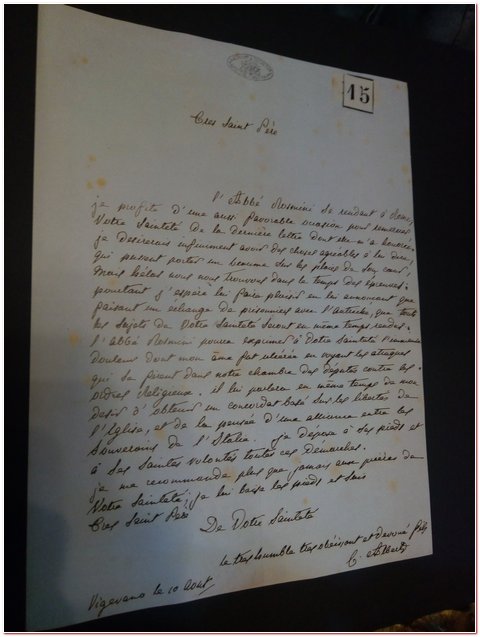 15
Très Saint Père
l'Abbé Rosmini se rendant à Rome,
je profite d'une aussi favorable occasion pour remercier
Votre Sainteté de la dernière lettre dont elle m'a honoré.
je desirerais infiniment avoir des choses agréables à lui dire,
qui pussent porter un beaume sur les plaies de son cœur,
Mais hélas nous nous trouvons dans le temps des épreuves;
pourtant j'espère lui faire plaisir en lui annonçant que
faisant un échange de prisonniers avec l'Autriche, que tout
les sujets de Votre Sainteté seront en même temps rendus.
l'abbé Rosmini pourra exprimer à Votre Sainteté l'immense
douleur dont mon âme fut ulcérée en voyant les attaques
qui se firent dans notre chambre des deputés contre les
ordres Religieux. il lui parlera en même temps de mon
desir d'obtenir un concordat basé sur les libertés de
l'Eglise, et de la pensée d'une alliance entre les
Souverains de l'Italie. je dépose à ses pieds et
à ses Saintes volontés toutes ces démarches.
je me recommande plus que jamais aux prières de
Votre Sainteté; je lui baise les pieds et suis
Très Saint Père
De Votre Sainteté
le très humble très obéissant et devoué fils
C. Albert
Vigevano le 10 Août